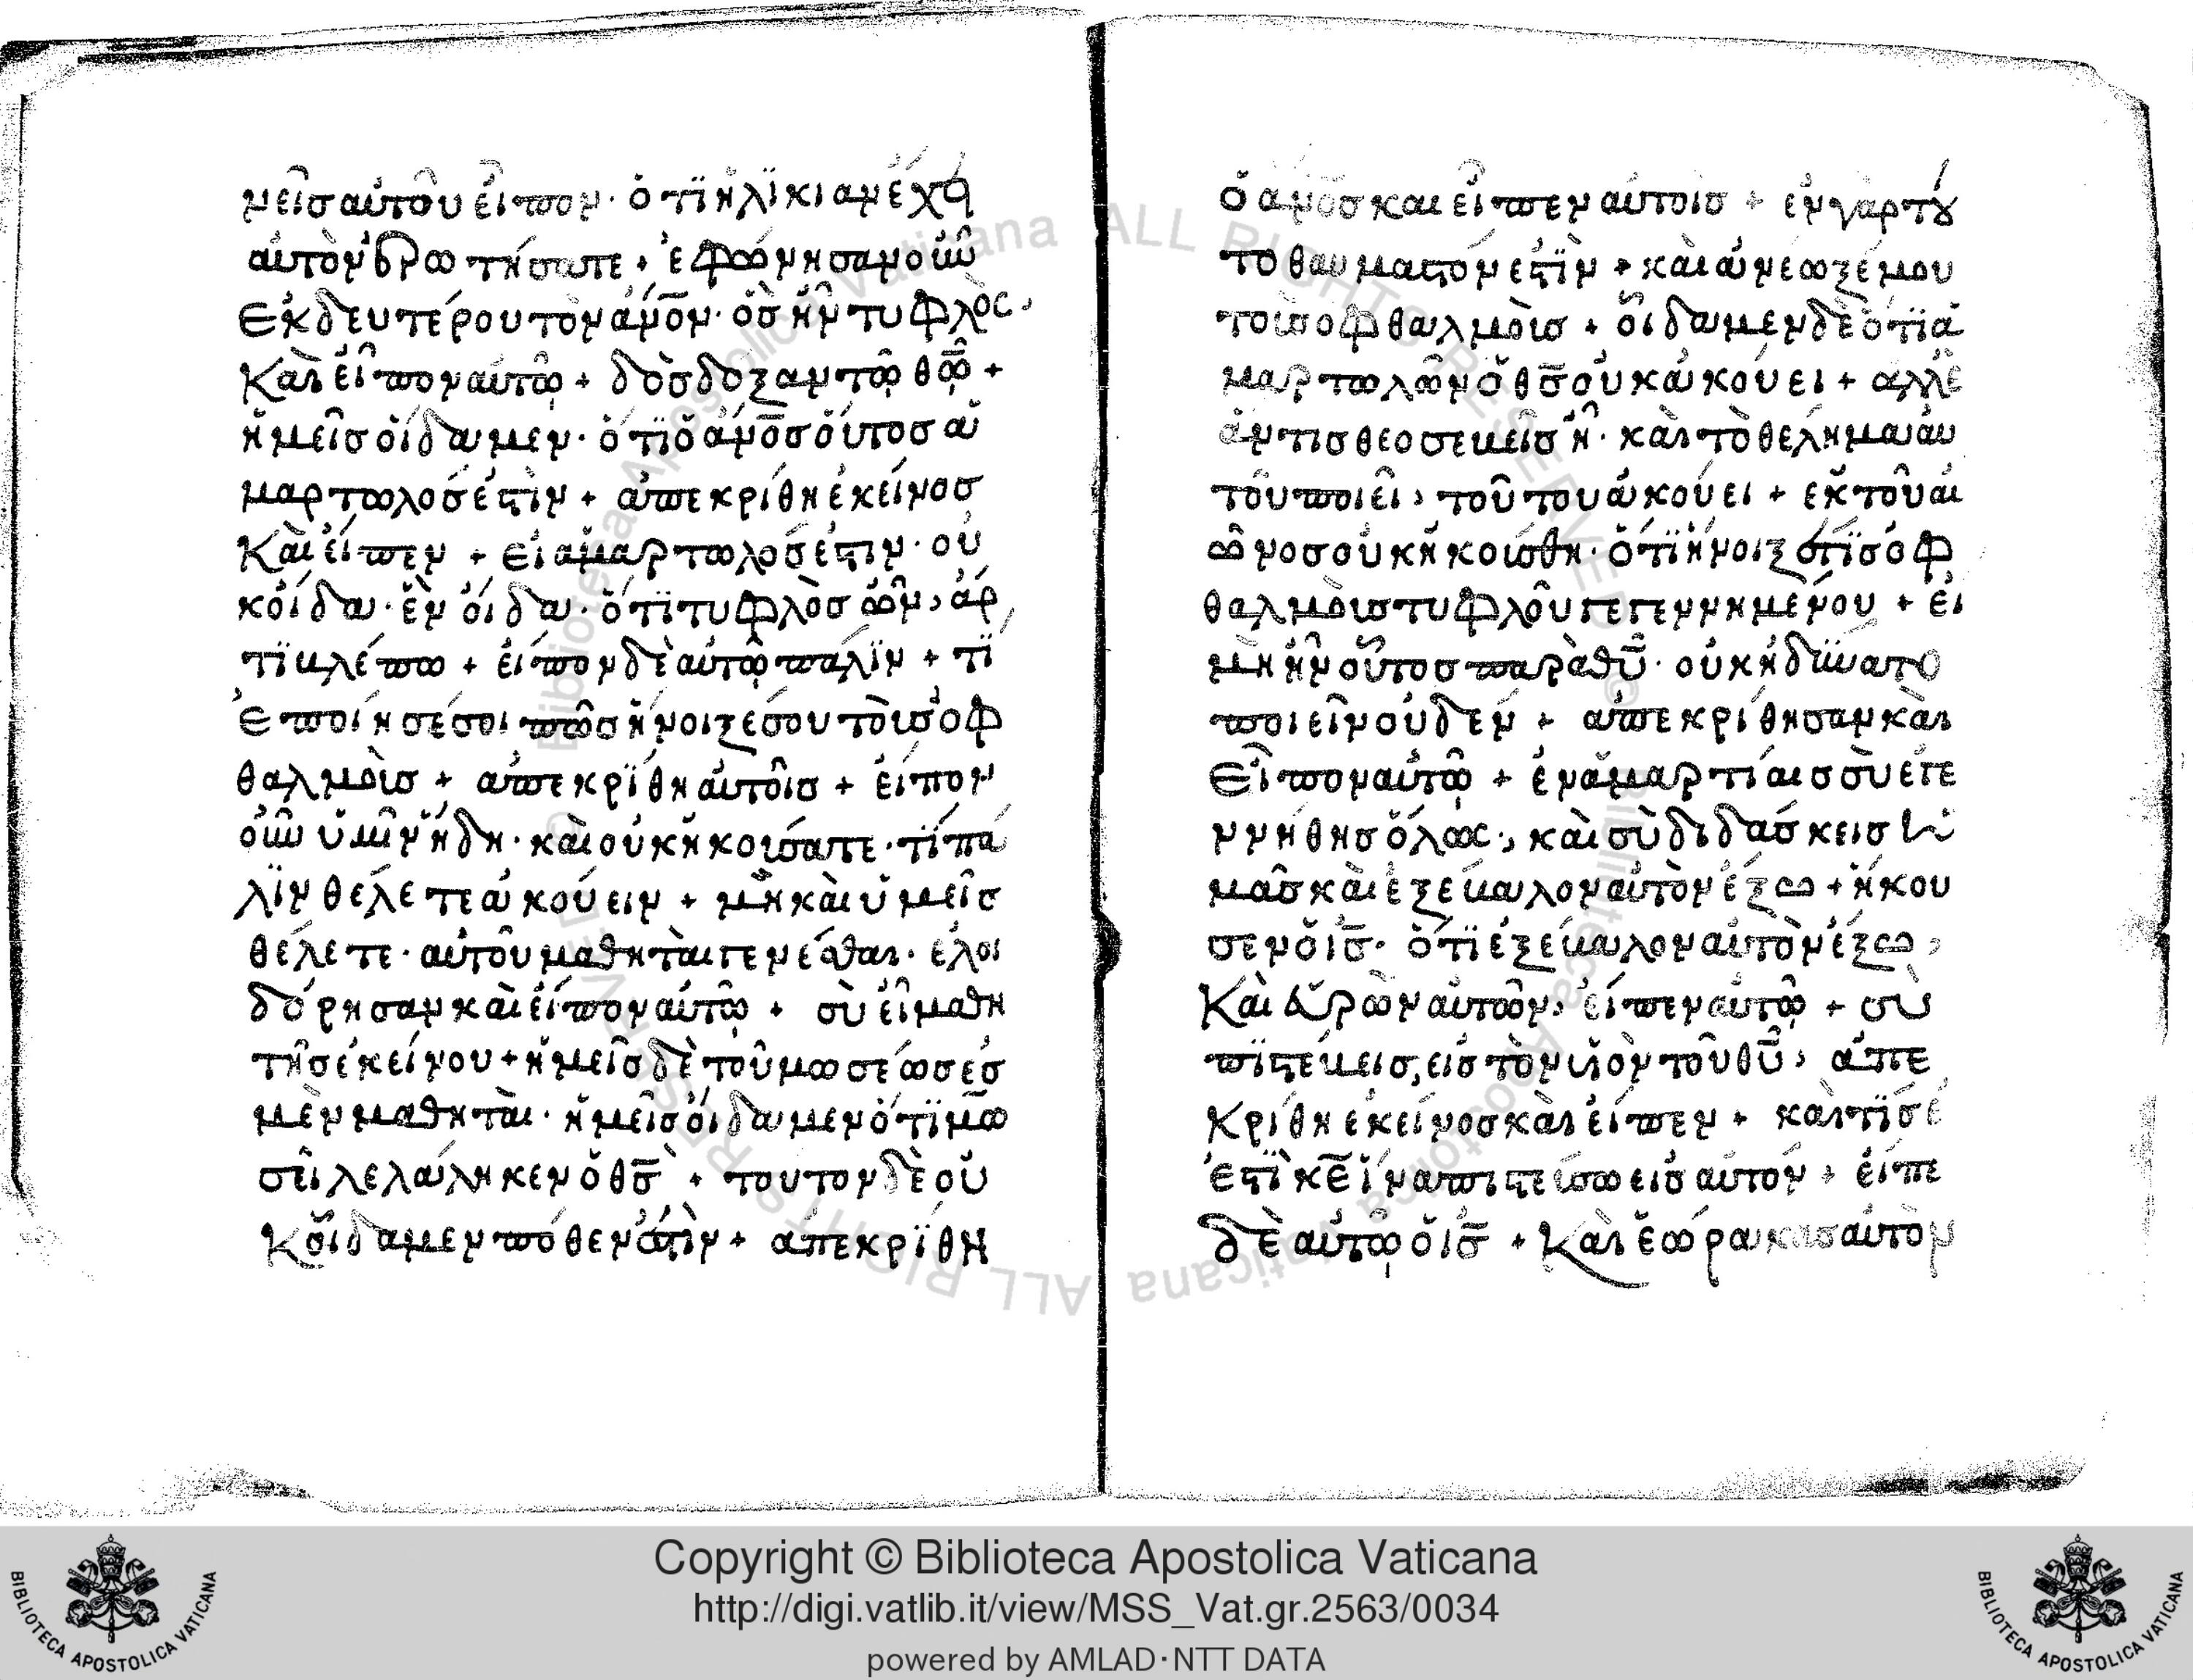 μεῖσ αὐτοῦ εἶπον· ὅτι ἡλικίαν ἔχει
αὐτὸν ἐρωτήσατε + ἐφώνησαν οὖν
ἐκ δευτέρου τὸν ἄνον· ὃσ ἦν τυφλὸς,
Καὶ εἶπον αὐτῷ + δὸσ δόξαν τῷ θῶ +
ἡμεῖσ οἴδαμεν· ὅτι ὁ ἄνοσ οὗτοσ ἁ
μαρτωλόσ ἐστὶν + ἀπεκρίθη ἐκεῖνοσ
Καὶ εἶπεν + εἰ ἁμαρτωλόσ ἐστιν· οὐ
κ οἶδα· ἓν οἶδα· ὅτι τυφλὸσ ὢν, ἄρ
τι βλέπω + εἶπον δὲ αὐτῷ πάλιν + τί
ἐποίησέ σοι πῶσ ἤνοιξέ σου τοὺσ ὀφ
θαλμοὺσ + ἀπεκρίθη αὐτοῖσ + εἶπον
οὖν ὑμῖν ἤδη· καὶ οὐκ ἠκούσατε· τί πά
λιν θέλετε ἀκούειν + μὴ καὶ ὑμεῖσ
θέλετε· αὐτοῦ μαθηταὶ γενέσθαι· ἐλοι
δόρησαν καὶ εἶπον αὐτῷ + σὺ εἶ μαθη
τὴσ ἐκείνου + ἡμεῖσ δὲ τοῦ μωσέωσ ἐσ
μὲν μαθηταὶ· ἡμεῖσ οἴδαμεν ὅτι μω
σεῖ λελάληκεν ὁ θσ + τοῦτον δὲ οὐ
Κ οἴδαμεν πόθεν ἐστὶν + ἀπεκρίθη
ὁ ἄνοσ καὶ εἶπεν αὐτοῖσ + ἐν γὰρ τού
τω θαυμαστόν ἐστιν + καὶ ἀνέωξέ μου
τοὺσ ὀφθαλμοὺσ + οἴδαμεν δὲ ὅτι ἁ
μαρτωλῶν ὁ θσ οὐκ ἀκούει + ἀλλ' ἐ
άν τισ θεοσεβεῖσ ἦ· καὶ τὸ θέλημα αὐ
τοῦ ποιεῖ, τούτου ἀκούει + ἐκ τοῦ αἰ
ῶνοσ οὐκ ἠκούσθη· ὅτι ἤνοιξέ τισ ὀφ
θαλμοὺσ τυφλοῦ γεγεννημένου + εἰ
μὴ ἦν οὗτοσ παρὰ θῦ· οὐκ ἠδύνατο
ποιεῖν οὐδέν + ἀπεκρίθησαν καὶ
Εἶπον αὐτῷ + ἐν ἁμαρτίαισ σὺ ἐγε
ννήθησ ὅλως, καὶ σὺ διδάσκεισ ἡ
μᾶσ καὶ ἐξέβαλον αὐτὸν ἔξω + ἤκου
σεν ὁ ισ· ὅτι ἐξέβαλον αὐτὸν ἔξω,
Καὶ εὑρὼν αὐτὸν, εἶπεν αὐτῷ + σὺ
πιστεύεισ, εἰσ τὸν υἱὸν τοῦ θῦ, ἀπε
Κρίθη ἐκεῖνοσ καὶ εἶπεν + καὶ τίσ ἐ
ἐστὶ κε ἵνα πιστεύσω εἰσ αὐτόν, εἶπε
δὲ αὐτῷ ὁ ισ + Καὶ ἑώρακασ αὐτὸν
Copyright © Biblioteca Apostolica Vaticana
http://digi.vatlib.it/view/MSS_Vat.gr.2563/0034
powered by AMLAD·NTT DATA
BIBLIOTECA APOSTOLICA VATICANA
BIBLIOTECA APOSTOLICA VATICANA